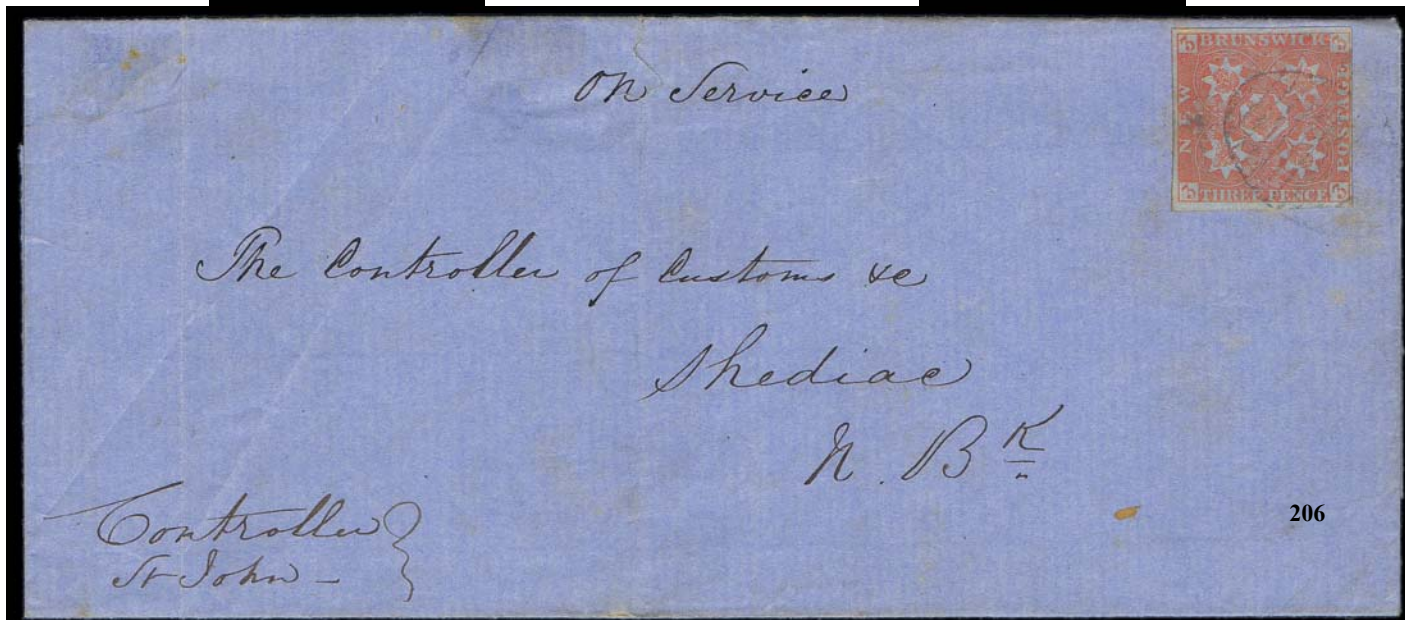 On Service
BRUNSWICK
NEW
POSTAGE
THREE PENCE
The Controller of Customs &c
Shediac
N. B K
206
Controller
St John -